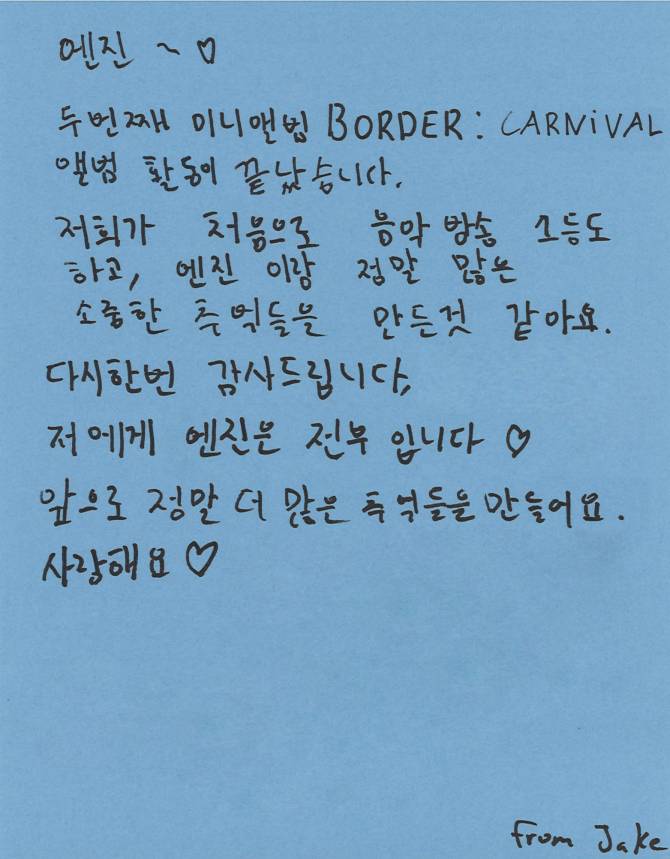 엔진 ~ ♡
두번째 미니앨범 BORDER : CARNiVAL
앨범 활동이 끝났습니다.
저희가 처음으로 음악 방송 1등도
하고, 엔진 이랑 정말 많은
소중한 추억들을 만든것 같아요.
다시한번 감사드립니다,
저에게 엔진은 전부 입니다 ♡
앞으로 정말 더 많은 추억들을 만들어요.
사랑해요 ♡
from Jake